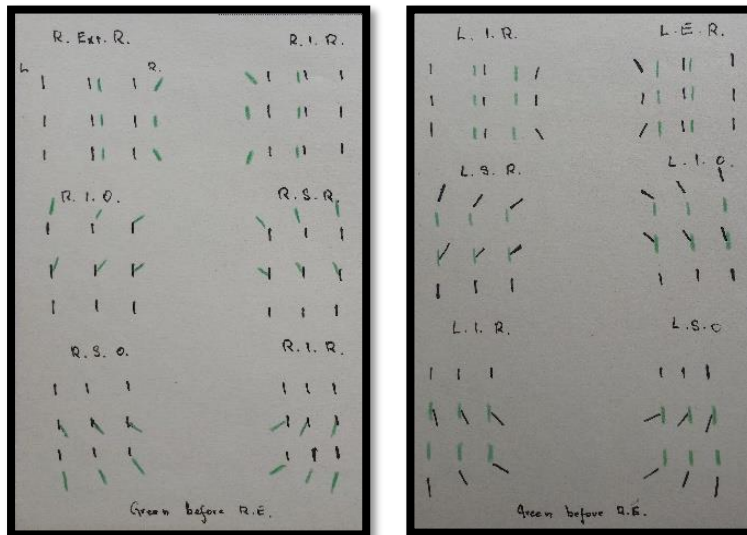 R. Ext. R. R. I. R.
L R.
R. I. O. R. S. R.
R. S. O. R. I. R.
Green before R.E.
L. I. R. L. E. R.
L. S. R. L. I. O.
L. I. R. L. S. O
Green before R.E.